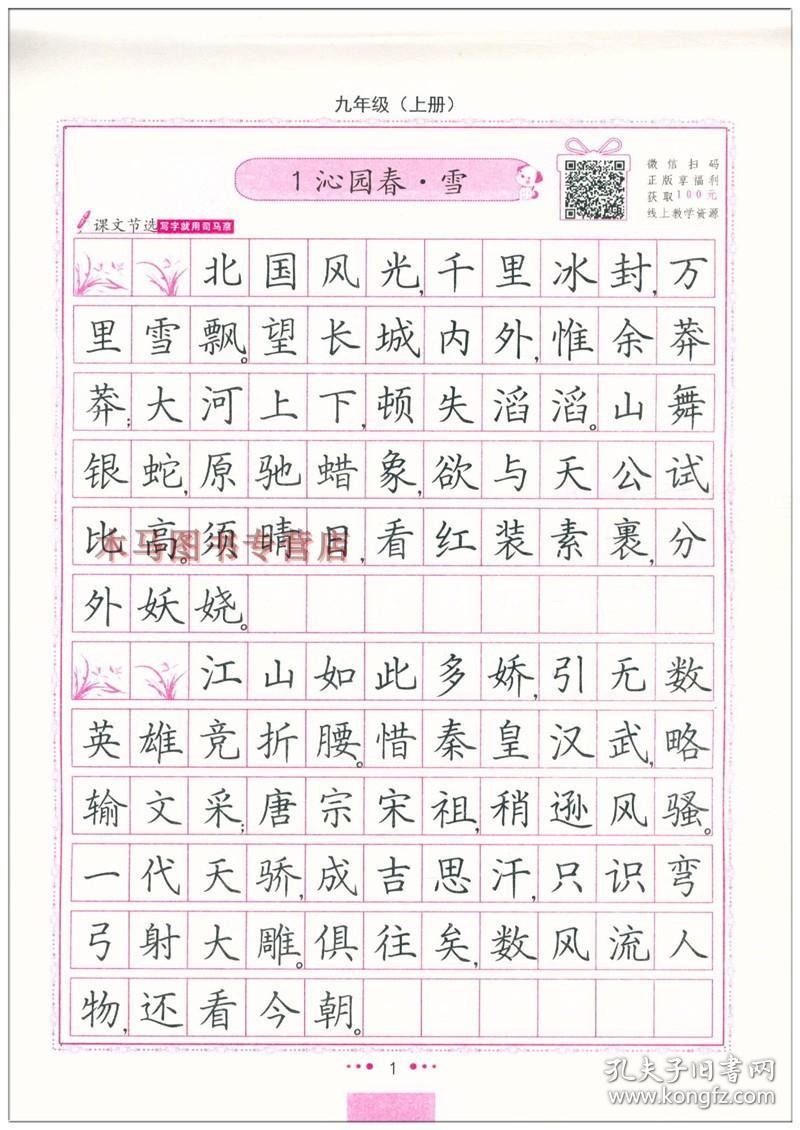 九年级（上册）
1 沁园春·雪
微信扫码
正版享福利
获取100元
线上教学资源
课文节选 写字就用司马彦
北国风光,千里冰封,万
里雪飘。望长城内外,惟余莽
莽;大河上下,顿失滔滔。山舞
银蛇,原驰蜡象,欲与天公试
比高。须晴日,看红装素裹,分
木马图书专营店
外妖娆。
江山如此多娇,引无数
英雄竞折腰。惜秦皇汉武,略
输文采;唐宗宋祖,稍逊风骚。
一代天骄,成吉思汗,只识弯
弓射大雕。俱往矣,数风流人
物,还看今朝。
1
孔夫子旧书网
www.kongfz.com